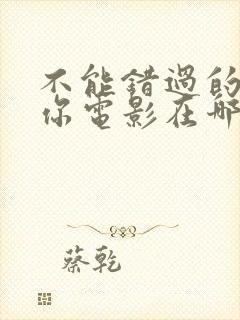 不能錯過的
你電影在哪
蔡乾